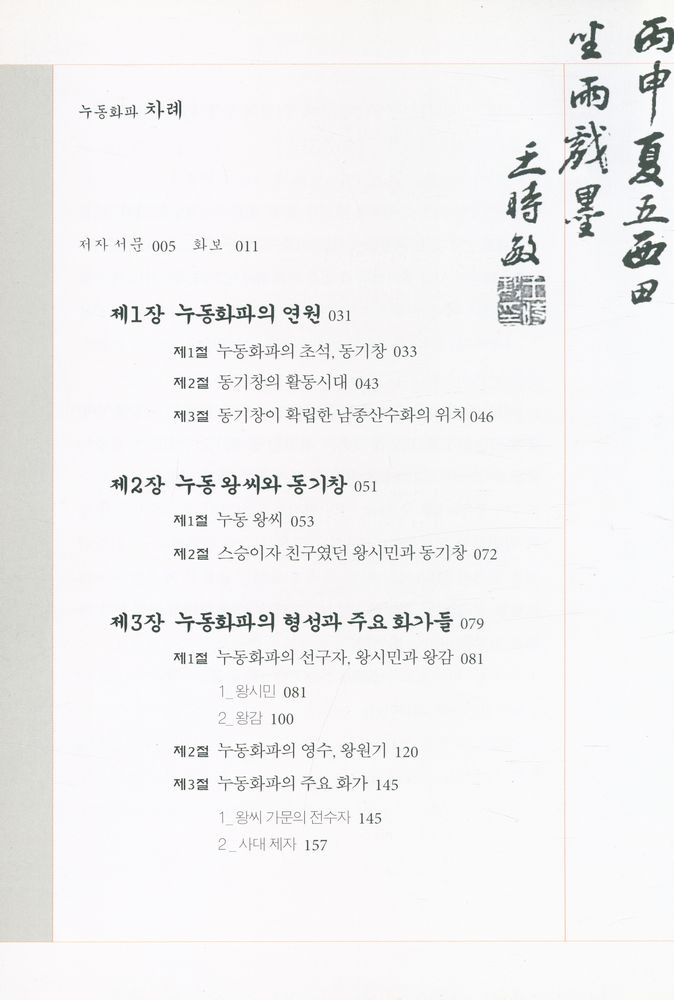 누동화파 차례
저자 서문 005 화보 011
제1장 누동화파의 연원 031
제1절 누동화파의 초석, 동기창 033
제2절 동기창의 활동시대 043
제3절 동기창이 확립한 남종산수화의 위치 046
제2장 누동 왕씨와 동기창 051
제1절 누동 왕씨 053
제2절 스승이자 친구였던 왕시민과 동기창 072
제3장 누동화파의 형성과 주요 화가들 079
제1절 누동화파의 선구자, 왕시민과 왕감 081
1_왕시민 081
2_왕감 100
제2절 누동화파의 영수, 왕원기 120
제3절 누동화파의 주요 화가 145
1_왕씨 가문의 전수자 145
2_사대 제자 157
丙申夏五西田
坐雨戱墨
王時敏